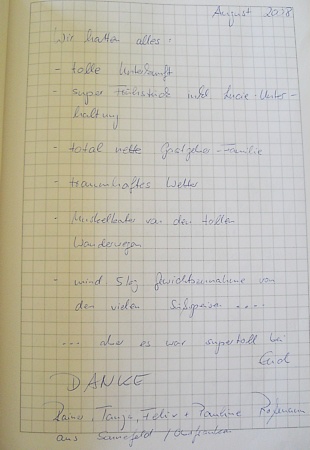 August 2018
Wir hatten alles:
- tolle Unterkunft
- super Frühstück inkl. Lucie-Unter-
haltung
- total nette Gastgeber-Familie
- traumhaftes Wetter
- Muskelkater von den tollen
Wanderwegen
- mind 5kg Gewichtszunahme von
den vielen Süßspeisen ....
... aber es war supertoll bei
Euch
DANKE
Tanja, Felix + Pauline
aus